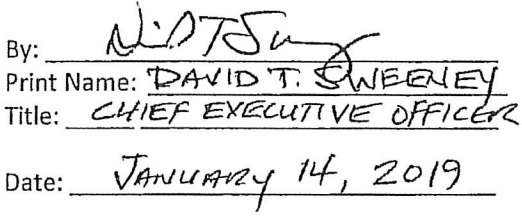 By:
Print Name: DAVID T. SWEENEY
Title: CHIEF EXECUTIVE OFFICER
Date: JANUARY 14, 2019